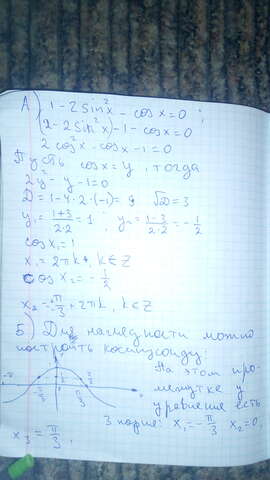 А) 1 - 2sin²x - cosx = 0 ;
2 - 2sin²x) - 1 - cosx = 0
2cos²x - cosx - 1 = 0
Пусть cosx = y, тогда
2y² - y - 1 = 0
D = 1 - 4·2·(-1) = 9 √D = 3
y₁ = (1+3)/(2·2) = 1 ; y₂ = (1-3)/(2·2) = -1/2
cosx₁ = 1
x₁ = 2πk, k∈Z
cosx₂ = -1/2
x₂ = ±π/3 + 2πk, k∈Z
Б.) Для наглядности можно
построить косинусоиду.
На этом про-
межутке у
уравнения есть
3 корня: x₁ = -π/3 x₂ = 0
x₃ = π/3 ;